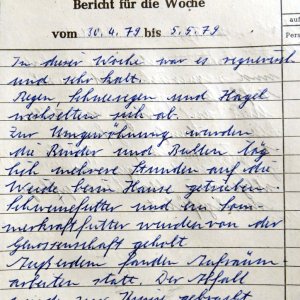 Bericht für die Woche
vom 30.4.79 bis 5.5.79
In dieser Woche war es regnerisch
und sehr kalt.
Regen, Schneeregen und Hagel
wechselten sich ab.
Zur Umgewöhnung wurden
die Rinder und Bullen täg-
lich mehrere Stunden auf die
Weide beim Hause getrieben.
Schweinefutter und ein Som-
merkraftfutter wurden von der
Genossenschaft geholt
Außerdem fanden Aufräum
arbeiten statt Der Abfall
auf
Pers